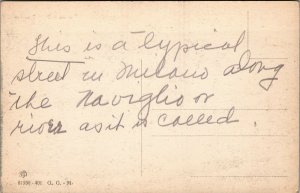 This is a typical
street in Milano along
the Naviglio or
river as it is called.
G. G. - M.